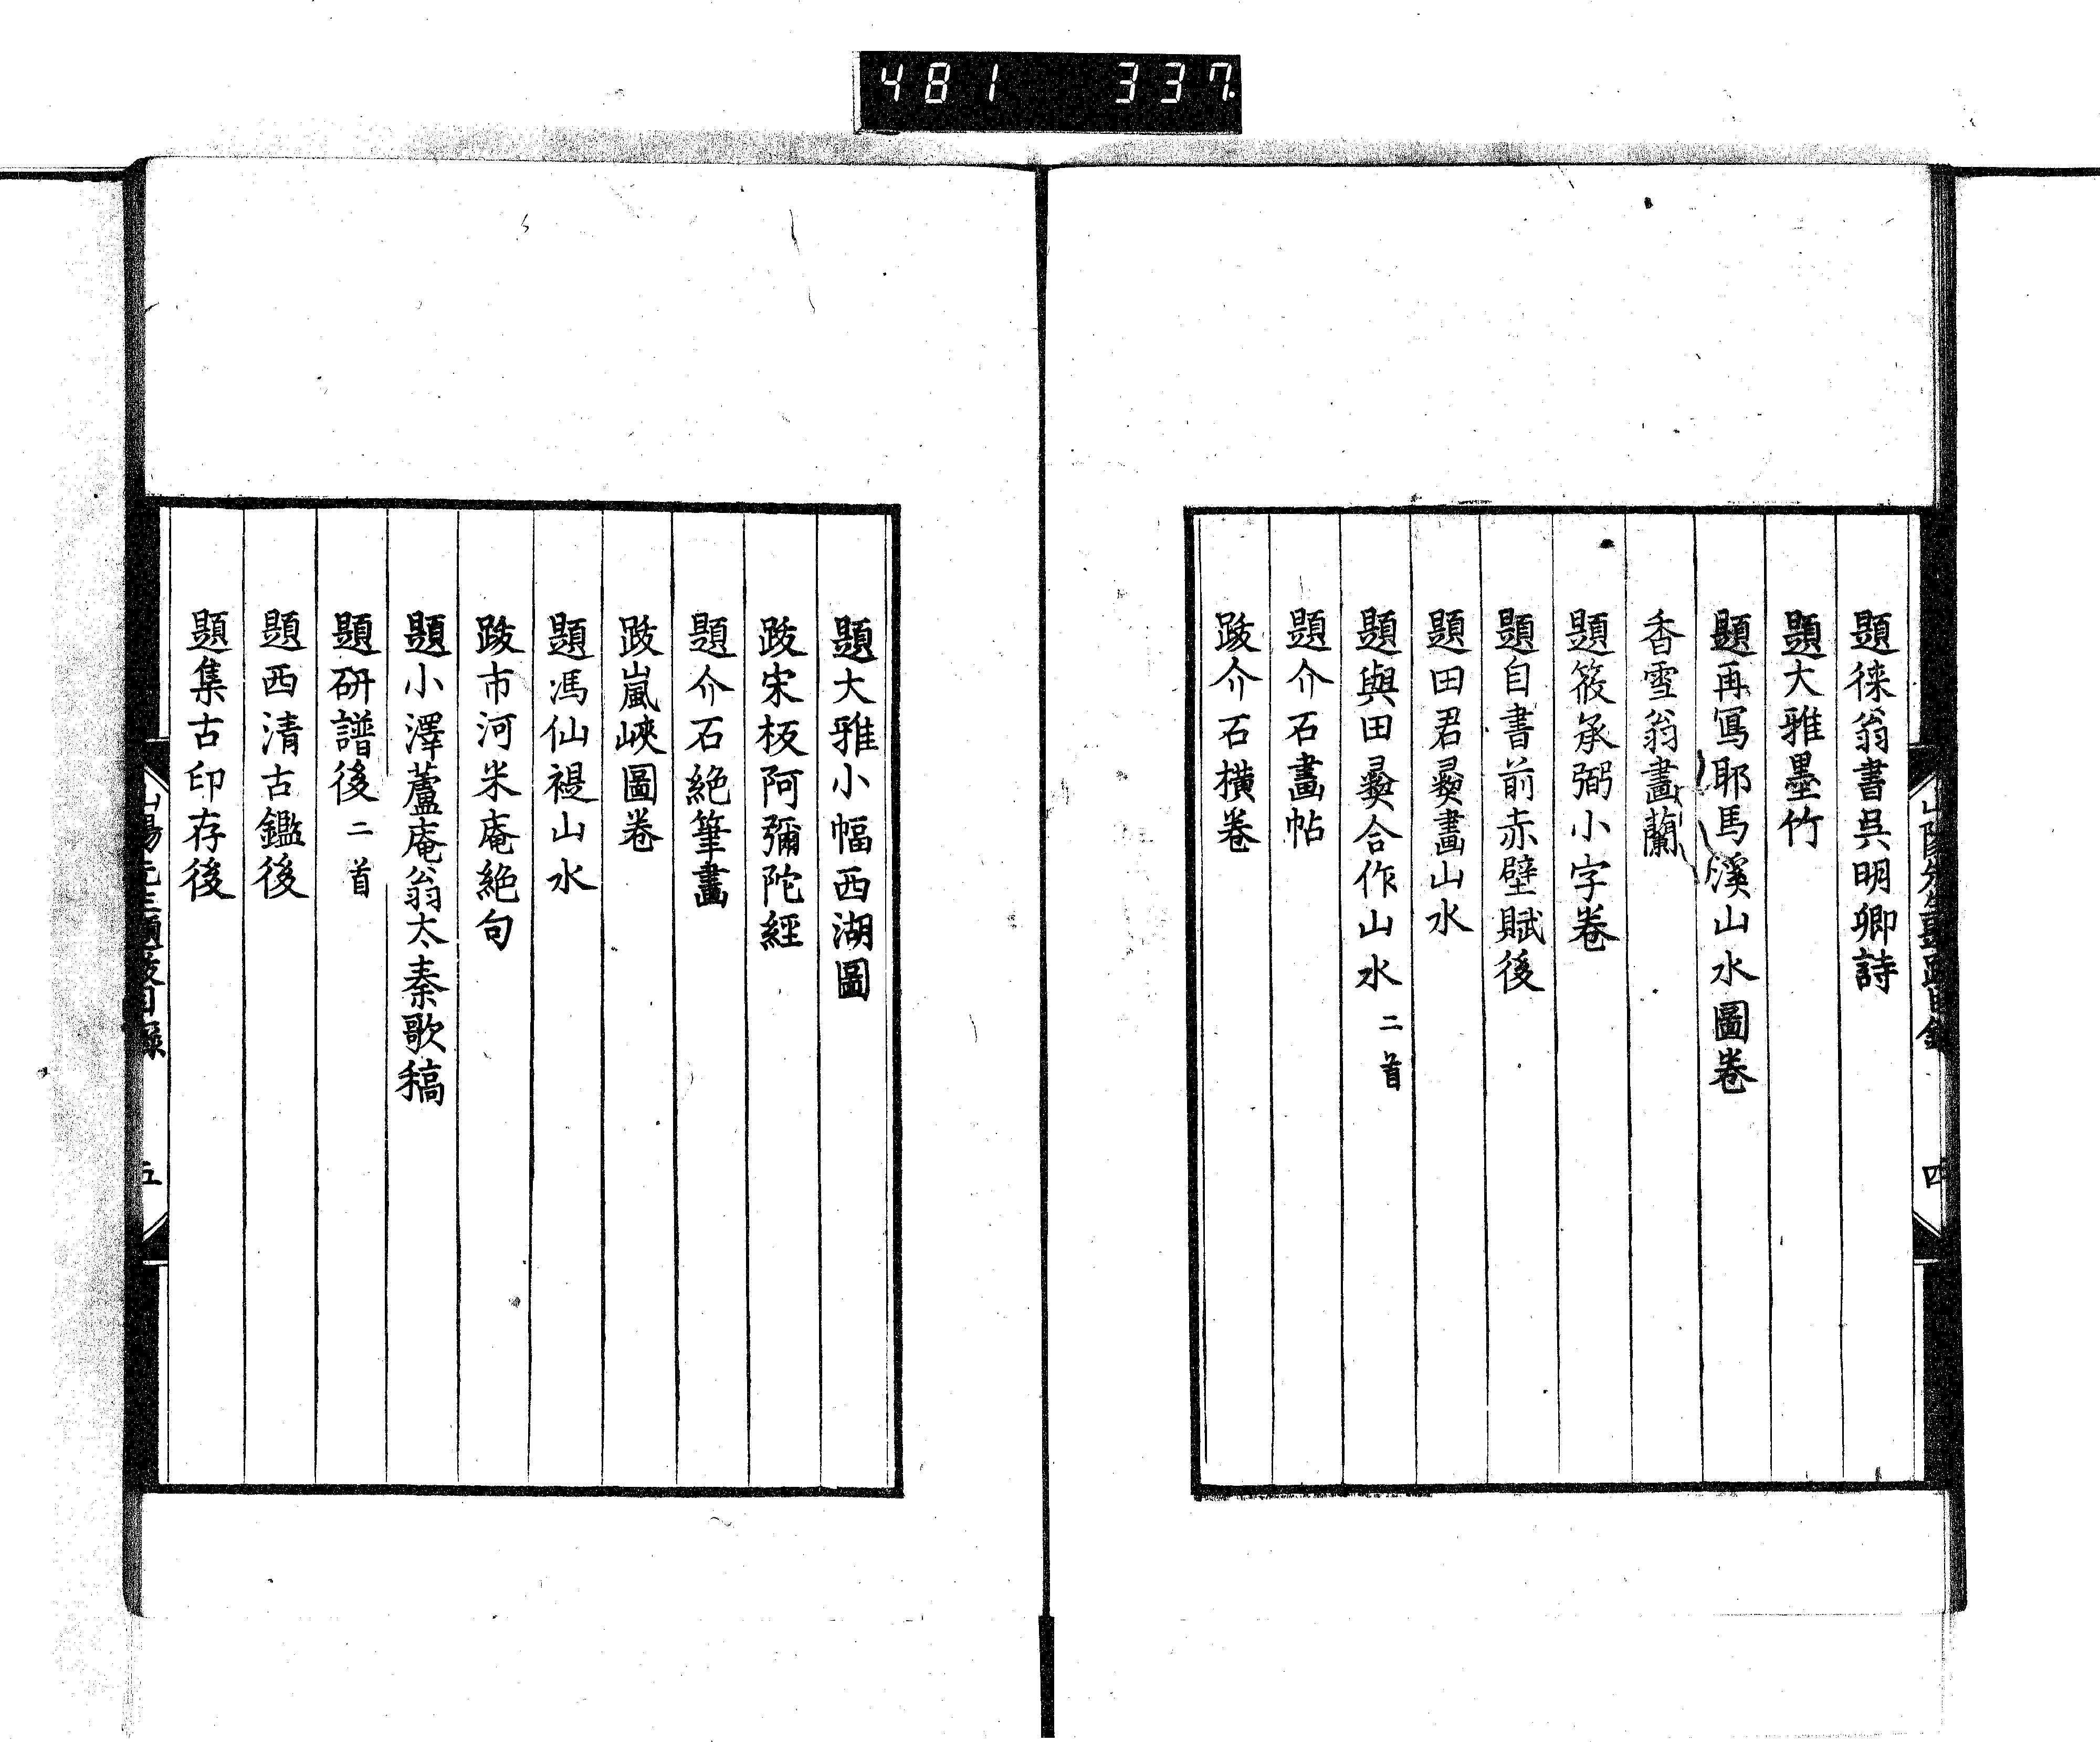 481 337
題徠翁書呉明卿詩
題大雅墨竹
題再寫耶馬溪山水圖卷
香雪翁畫蘭
題筱承弼小字卷
題自書前赤壁賦後
題田君彛畫山水
題與田彛合作山水 二首
題介石畫帖
跋介石横卷
四
題大雅小幅西湖圖
跋宋板阿彌陀經
題介石絶筆畫
跋嵐峽圖卷
題馮仙禔山水
跋市河米庵絶句
題小澤蘆庵翁太秦歌稿
題研譜後 二首
題西清古鑑後
題集古印存後
五